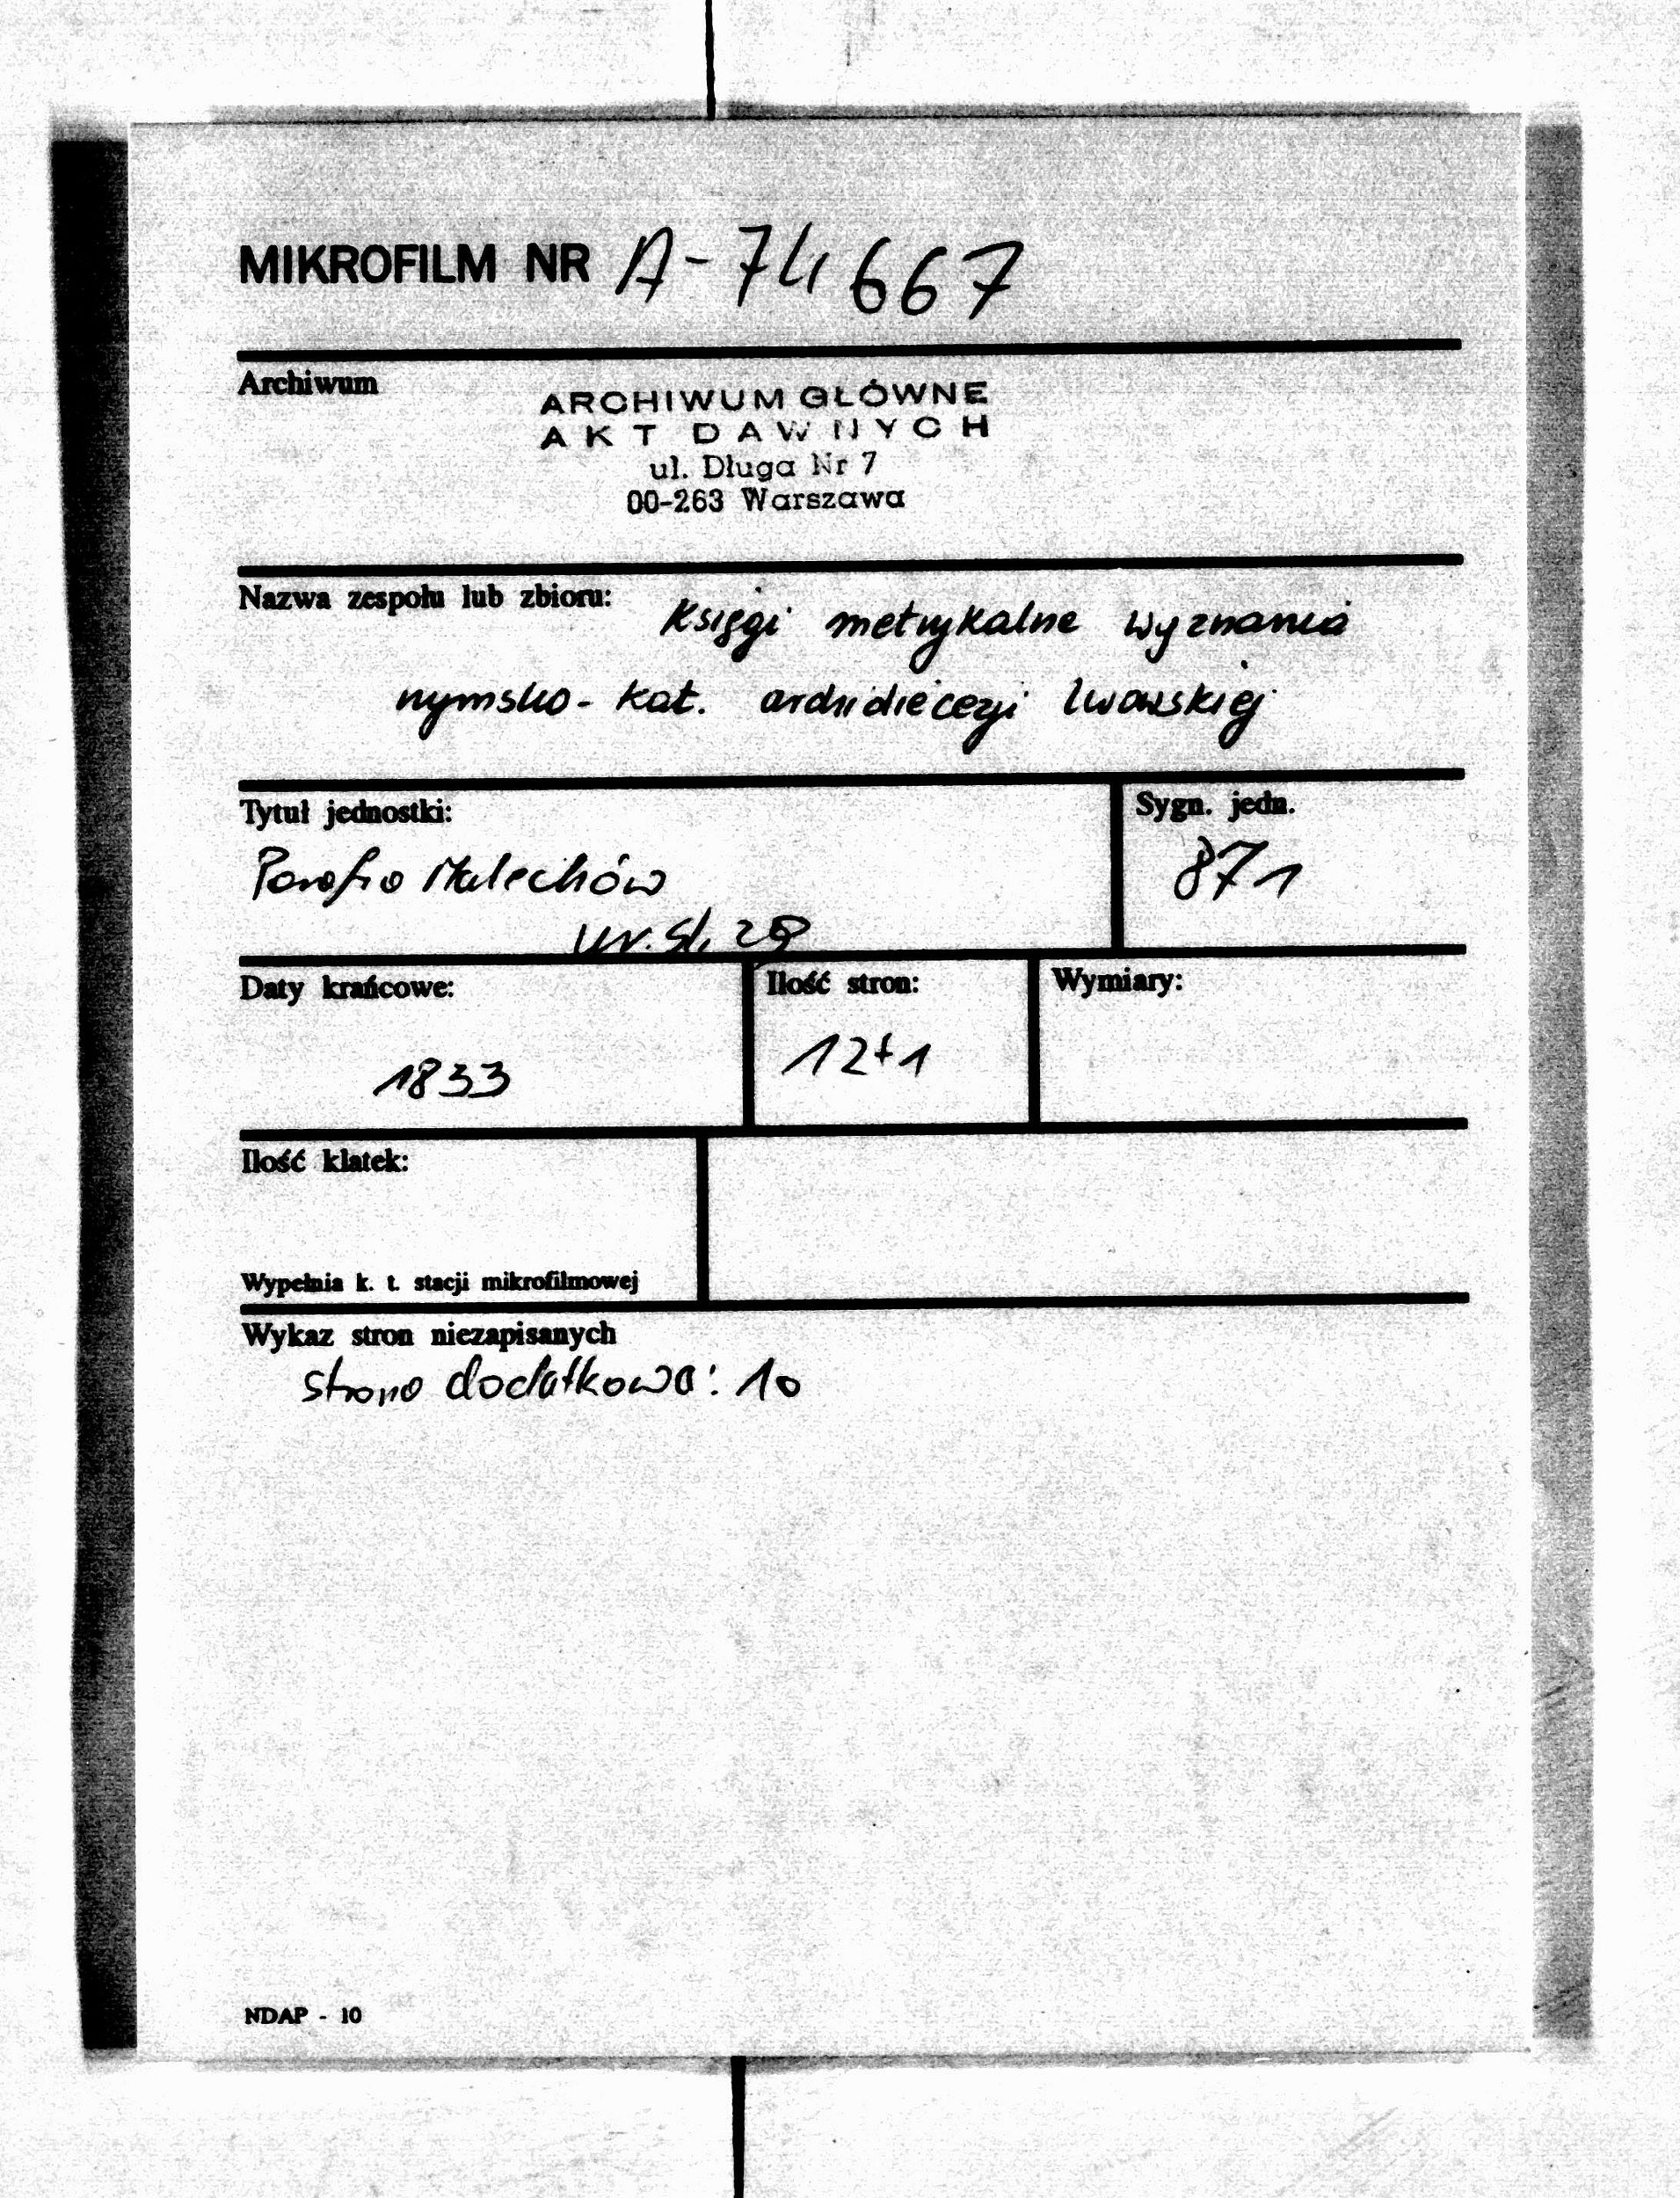 MIKROFILM NR A-74667
Archiwum
ARCHIWUM GŁÓWNE
AKT DAWNYCH
ul. Długa Nr 7
00-263 Warszawa
Nazwa zespołu lub zbioru: Księgi metrykalne wyznania
rzymsko-kat. archidiecezji lwowskiej
Tytuł jednostki:
Sygn. jedn.
Parafia Malechów
871
ur. śl.
Daty krańcowe:
Ilość stron:
Wymiary:
1833
12+1
Ilość klatek:
Wypełnia k. t. stacji mikrofilmowej
Wykaz stron niezapisanych
strona dodatkowa: 10
NDAP - 10